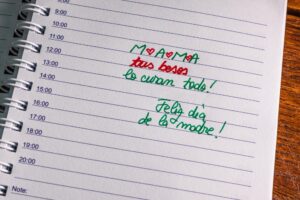 9:00
10:00
11:00
12:00
13:00
14:00
15:00
16:00
17:00
18:00
19:00
20:00
Note:
M♥A♥M♥A
tus besos
lo curan todo!
Feliz día
de la madre!